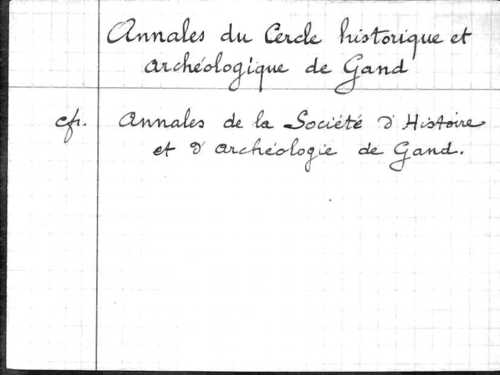 Annales du Cercle historique et
archéologique de Gand
cfr. Annales de la Société d'Histoire
et d'archéologie de Gand.